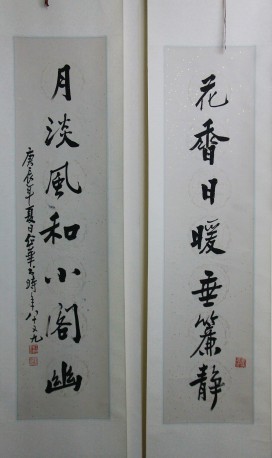 花香日暖垂簾靜
月淡風和小閣幽
庚辰年夏日
書時年八十又九